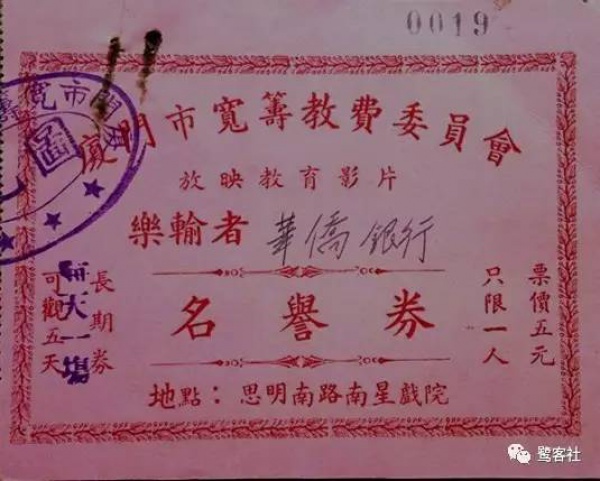 0019
廈門市寬籌教費委員會
放映教育影片
樂輸者 華僑銀行
名譽券
票價五元
只限一人
長期券
可觀五天
每天一場
地點：思明南路南星戲院
鹭客社